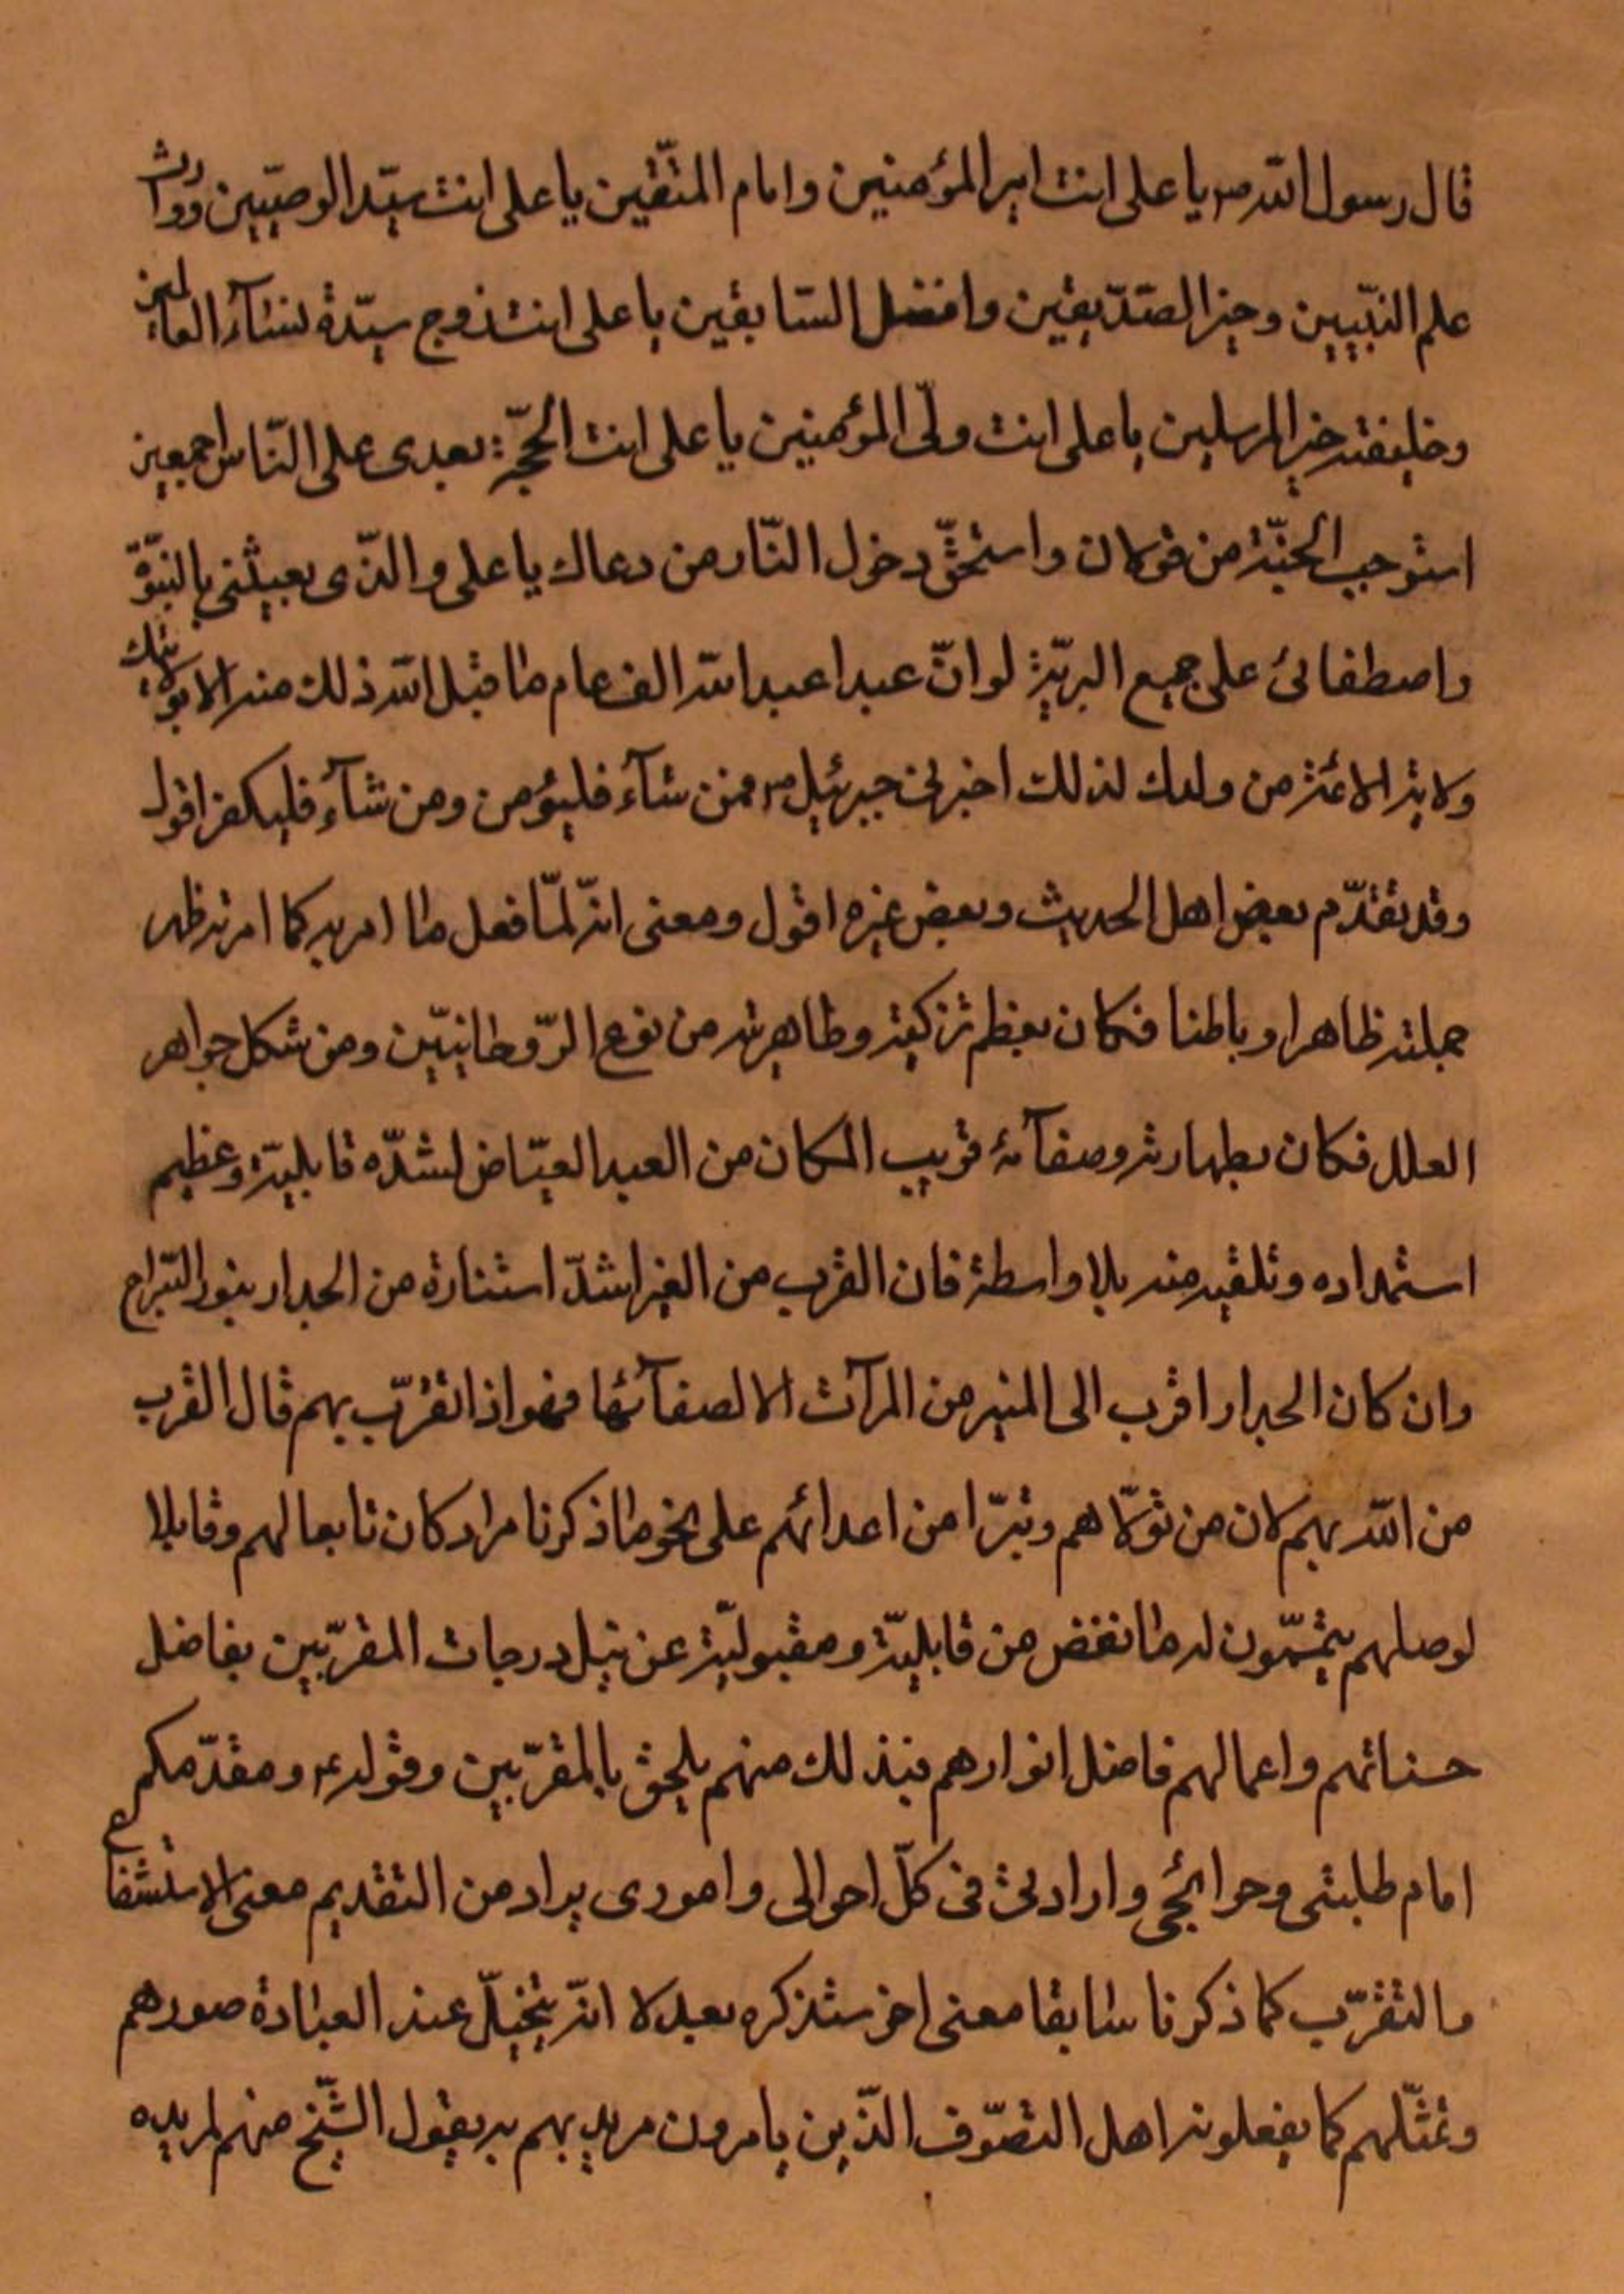 قال رسول الله ص يا على انت امير المؤمنين وامام المتّقين يا على انت سيّد الوصيّين ووارث
علم النبّيين وخير الصّدّيقين وافضل السّابقين يا على انت زوج سيّدة نسآء العالمين
وخليفة خير المرسلين يا على انت ولىّ المؤمنين يا على انت الحجّة بعدى على النّاس اجمعين
استوجب الجنّة من تولاك واستحقّ دخول النّار من دعاك يا على والذّى بعثنى بالنبّوّة
واصطفانى على جميع البريّة لو انّ عبدا عبد الله الف عام ما قبل الله ذلك منه الا بولايتك
ولاية الائمّة من ولدك لذلك اخبرنى جبرئيل ص فمن شآء فليؤمن ومن شآء فليكفر اقول
وقد تقدّم بعض اهل الحديث وبعض غيره اقول ومعنى انّه لمّا فعل ما امر به كما امر تطهر
جملته ظاهرا وباطنا فكان بعظم تزكيته وطاهريته من نوع الرّوحانيّين ومن شكل جواهر
العلل فكان بطهارته وصفآئه قريب المكان من العبد الفيّاض لشدّه قابليّته وعظيم
استمداده وتلقيه منه بلا واسطة فان القرب من الغير اشدّ استنارة من الجدار بنور السّراج
وان كان الجدار اقرب الى المنير من المرآت الا لصفآئها فهو اذا تقرّب بهم قال القرب
من الله بهم لان من تولّاهم وتبرّا من اعدائهم على نحو ما ذكرنا مرارا كان تابعا لهم وقابلا
لوصلهم يتمّمون له ما نقص من قابليّته ومقبوليّته عن نيل درجات المقرّبين بفاضل
حسناتهم واعمالهم فاضل انوارهم فبذلك منهم يلحق بالمقرّبين وقوله ع ومقدّمكم
امام طلبتى وحوائجى وارادتى فى كلّ احوالى وامورى يراد من التقديم معنى الاستشفاع
والتقرّب كما ذكرنا سابقا معنى اخر سنذكره بعد لا انّه يتخيّل عند العبادة صورهم
وتمثّلهم كما يفعلونه اهل التصّوف الذّين يامرون مريديهم به يقول الشّيخ منهم لمريده